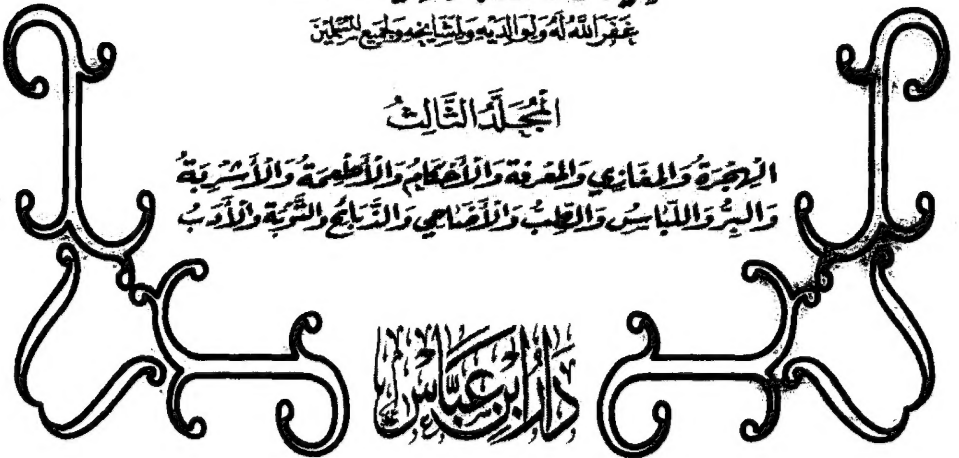 غَفَرَ اللَّهُ لَهُ وَلِوَالِدَيْهِ وَلِمَشَايِخِهِ وَلِجَمِيعِ المُسْلِمِينَ
الْمُجَلَّدُ الثَّالِثُ
الْهِجْرَةُ وَالمَغَازِي وَالمَعْرِفَة وَالْأَحْكَامُ وَالْأَطْعِمَةُ وَالْأَشْرِبَةُ
وَالبِرُّ وَاللِّبَاسُ وَالطِّبُّ وَالْأَضَاحِي وَالذَّبَائِحُ وَالتَّوْبَة وَالْأَدَبُ
دَارُ ابْنِ عَبَّاسٍ